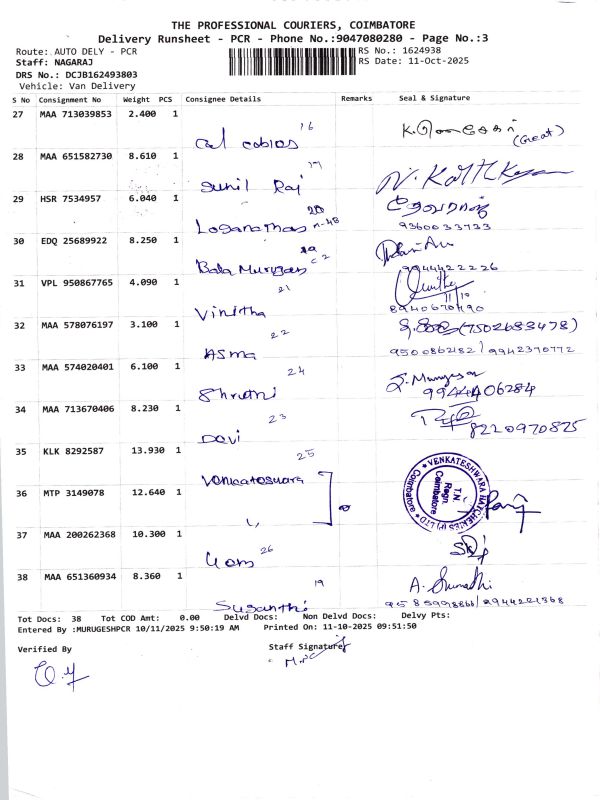 THE PROFESSIONAL COURIERS, COIMBATORE
Delivery Runsheet - PCR - Phone No.:9047080280 - Page No.:3
Route: AUTO DELY - PCR
RS No.: 1624938
Staff: NAGARAJ
RS Date: 11-Oct-2025
DRS No.: DCJB162493803
Vehicle: Van Delivery
S No Consignment No Weight PCS Consignee Details Remarks Seal & Signature
27 MAA 713039853 2.400 1
16
(Great)
28 MAA 651582730 8.610 1
Sunil Raj
29 HSR 7534957 6.040 1
20
Loganathan
9360033723
30 EDQ 25689922 8.250 1
Bala Murugan
9944422226
31 VPL 950867765 4.090 1
21
Vinitha
11/10
32 MAA 578076197 3.100 1
22
(7502683478)
Asma
9500862182 / 9942370772
33 MAA 574020401 6.100 1
24
S. Murugesan
Shruthi
9944406284
34 MAA 713670406 8.230 1
23
8220970825
Devi
35 KLK 8292587 13.930 1
25
Venkateswara
VENKATESHWARA HATCHERIES (P) LTD
T.N. Regn.
Coimbatore
36 MTP 3149078 12.640 1
37 MAA 200262368 10.300 1
26
38 MAA 651360934 8.360 1
19
Susanthi
Tot Docs: 38 Tot COD Amt: 0.00 Delvd Docs: Non Delvd Docs: Delvy Pts:
Entered By :MURUGESHPCR 10/11/2025 9:50:19 AM Printed On: 11-10-2025 09:51:50
Verified By
Staff Signature